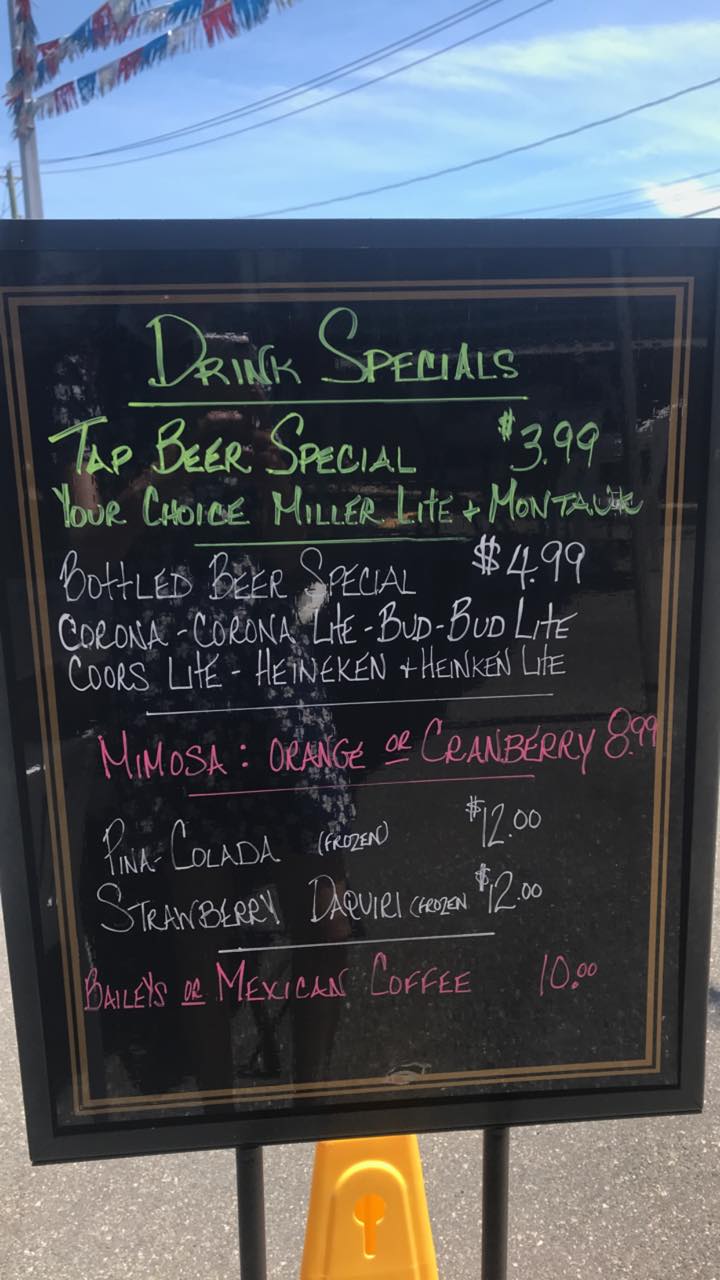 DRINK SPECIALS
TAP BEER SPECIAL $3.99
YOUR CHOICE MILLER LITE + MONTAUK
BOTTLED BEER SPECIAL $4.99
CORONA - CORONA LITE - BUD - BUD LITE
COORS LITE - HEINEKEN + HEINKEN LITE
MIMOSA : ORANGE OR CRANBERRY 8.99
PINA-COLADA (FROZEN) $12.00
STRAWBERRY DAQUIRI (FROZEN $12.00
BAILEYS OR MEXICAN COFFEE 10.00